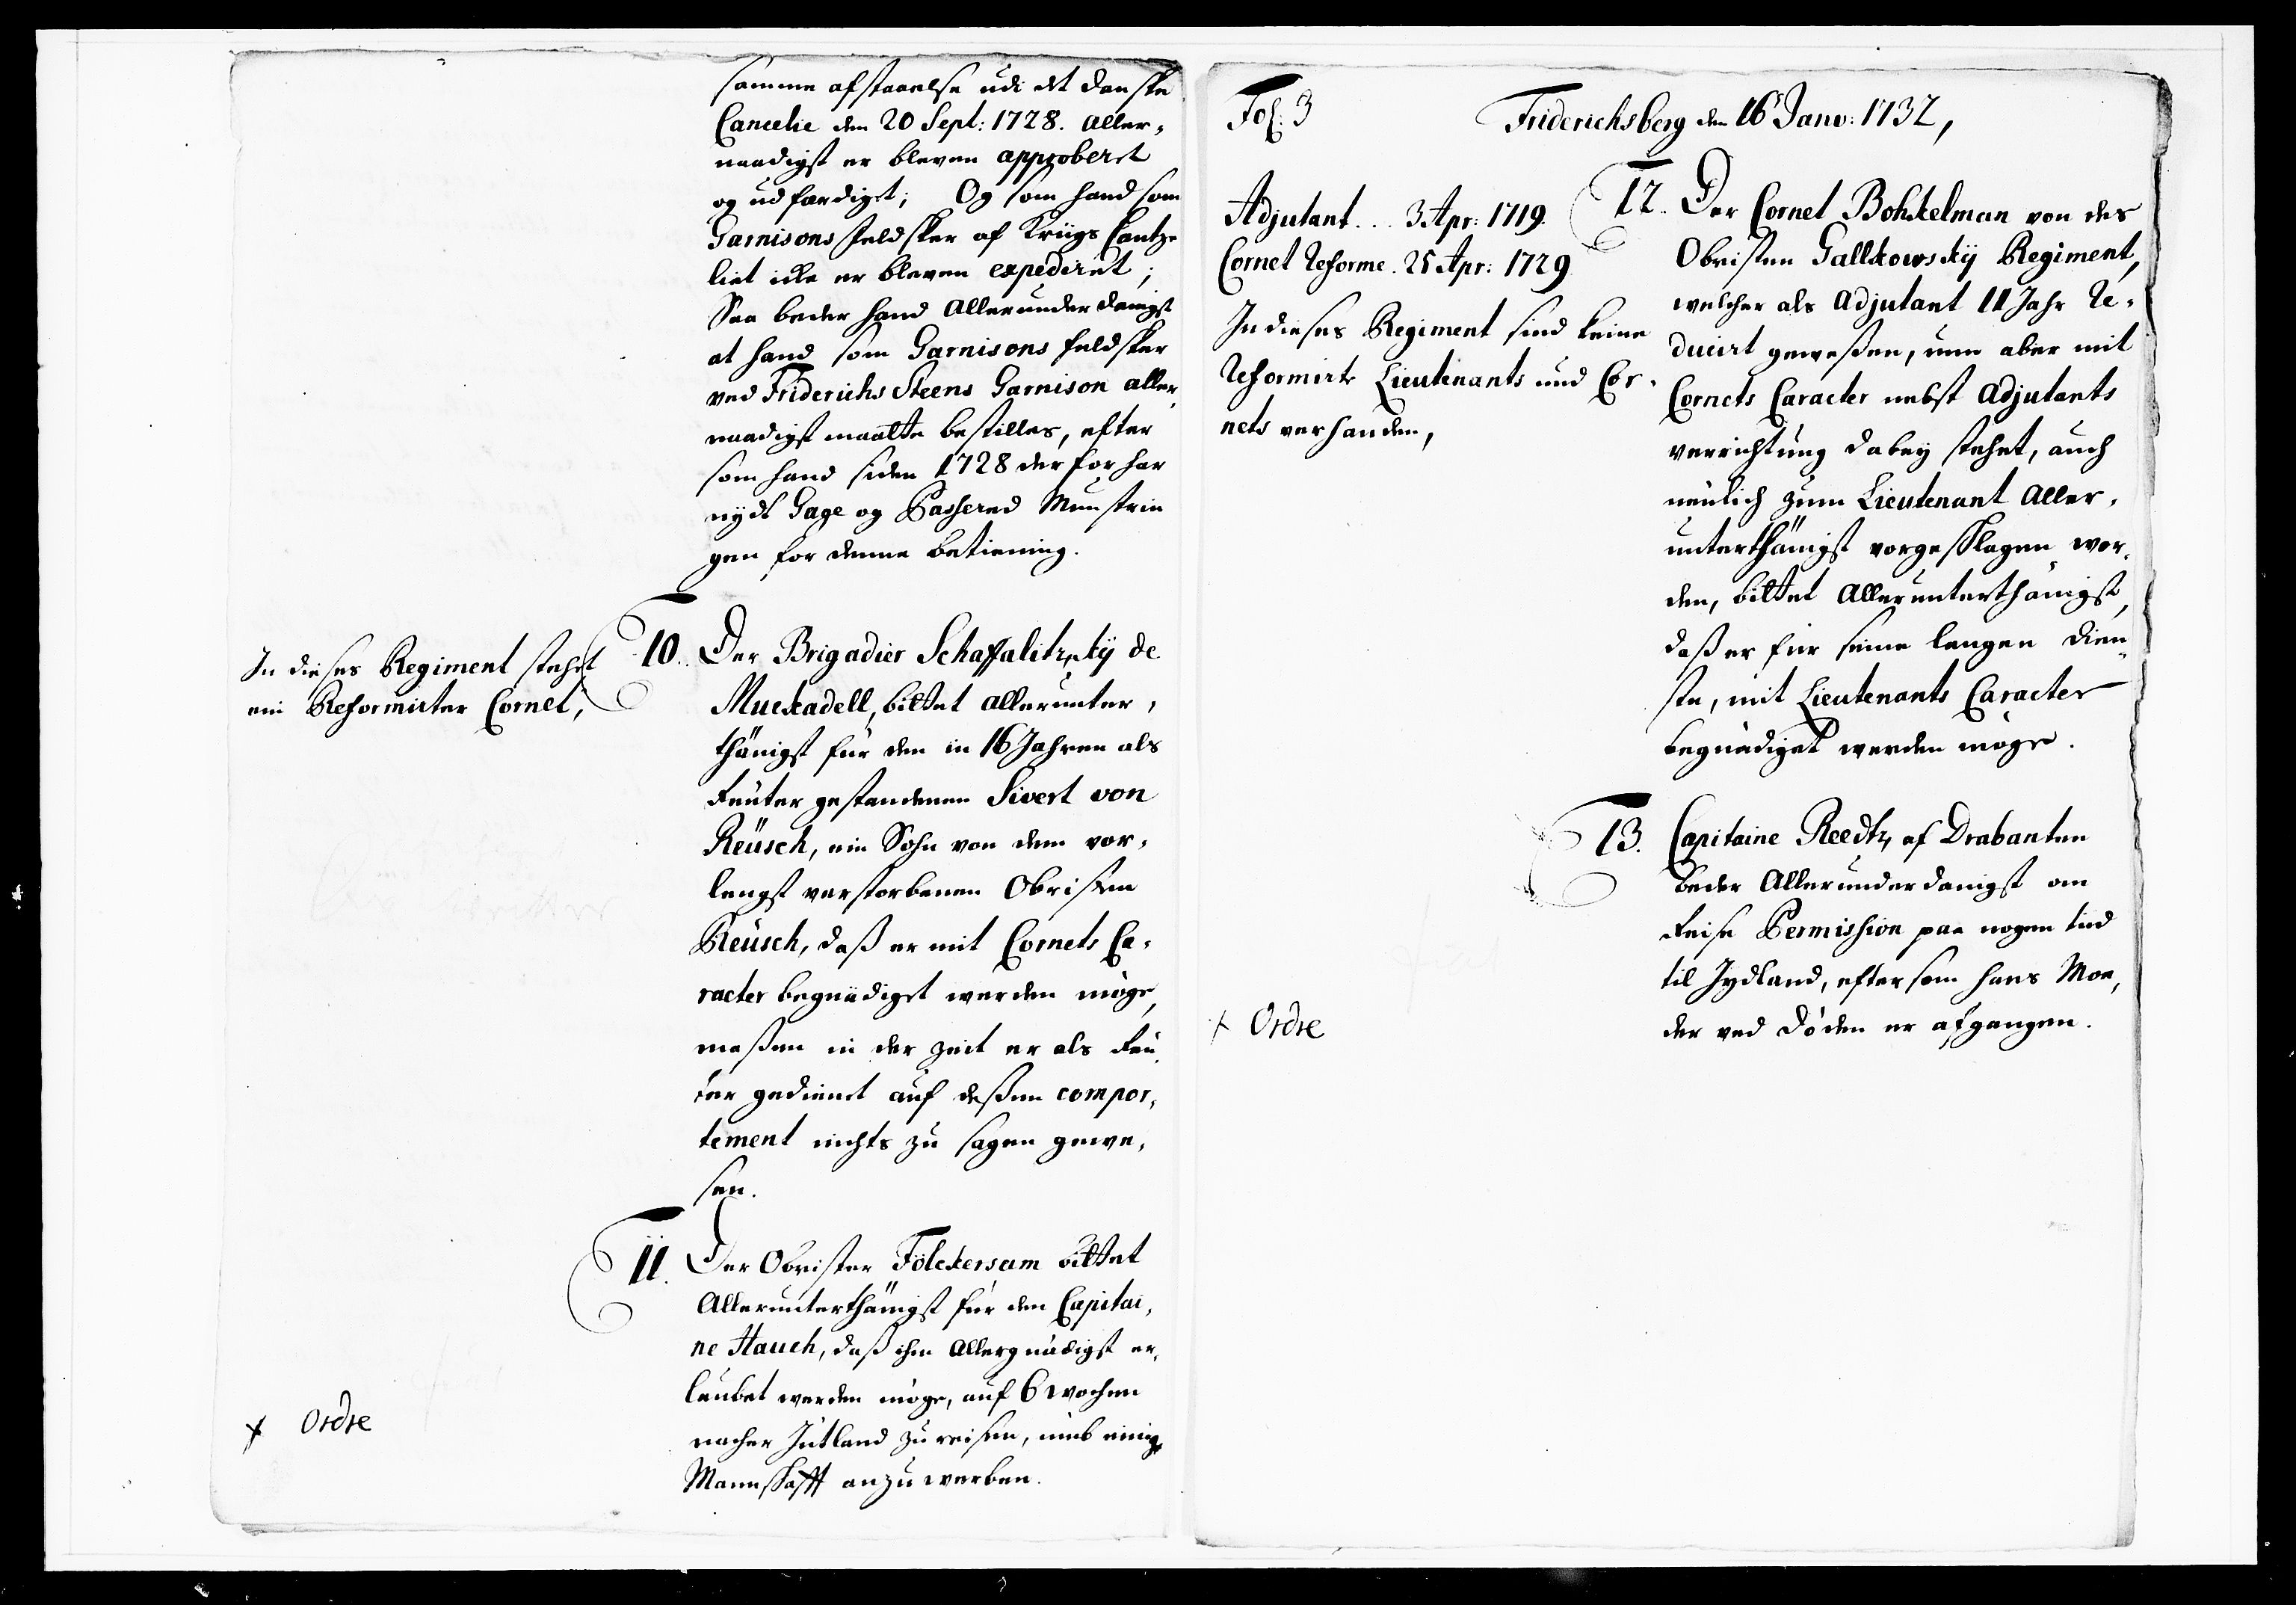 samme afstaaelse udi det danske
Cancelie den 20 Sept: 1728. aller-
naadigst er bleven approberet
og udfærdiget; Og som hand som
Garnisons feldskier af Kriigs Cantze
liet icke er bleven expediret;
Saa beder hand Allerunderdanigst
at hand som Garnisons feldskier
ved Friderichs Steens Garnison aller-
naadigst maatte bestilles, efter
som hand siden 1728 derfor har
nydt Gage og Passered Munstrin
gen for denne betiening.
In dieses Regiment stehet
ein Reformirter Cornet,
10. Der Brigadier Schaffalitzky de
Muckadell, bittet allerunter-
thänigst für den in 16 Jahren als
Reuter gestandenen Sivert von
Reüsch, ein Sohn von dem vor-
lengst verstorbenen Obristen
Reüsch, daß er mit Cornets Ca-
racter begnädiget werden möge,
maßen in der zeit er als Reu
ter gedienet auf deßen compor-
tement nichts zu sagen gewe-
sen.
11. Der Obrister Fölckersam bittet
Allerunterthänigst für den Capitai-
ne Hauch, daß ihm Allergnädigst er-
laubet werden möge, auf 6 wochen
nacher Jütland zu reisen, umb einige
Mannschafft anzuwerben.
+ Ordre
Fol: 3
Friderichsberg den 16 Janv: 1732,
Adjutant... 3 Apr: 1719.
Cornet Reforme. 25 Apr: 1729
In dieses Regiment sind keine
Reformirte Lieutenants und Cor-
nets verhanden,
12. Der Cornet Bohkelman von des
Obristen Gallkowsky Regiment,
welcher als Adjutant 11 Jahr Re-
ducirt gewesen, nun aber mit
Cornets Caracter nebst Adjutants
verrichtung dabey stehet, auch
neulich zum Lieutenant Aller-
unterthänigst vorgeschlagen wor-
den, bittet Allerunterthänigst,
daß er für seine langen dien-
ste, mit Lieutenants Caracter
begnädiget werden möge.
13. Capitaine Reedtz af Drabanten
beder Allerunderdanigst om
Reise Permission paa nogen tiid
til Jydland, eftersom hans Moe-
der ved døden er afgangen.
+ Ordre